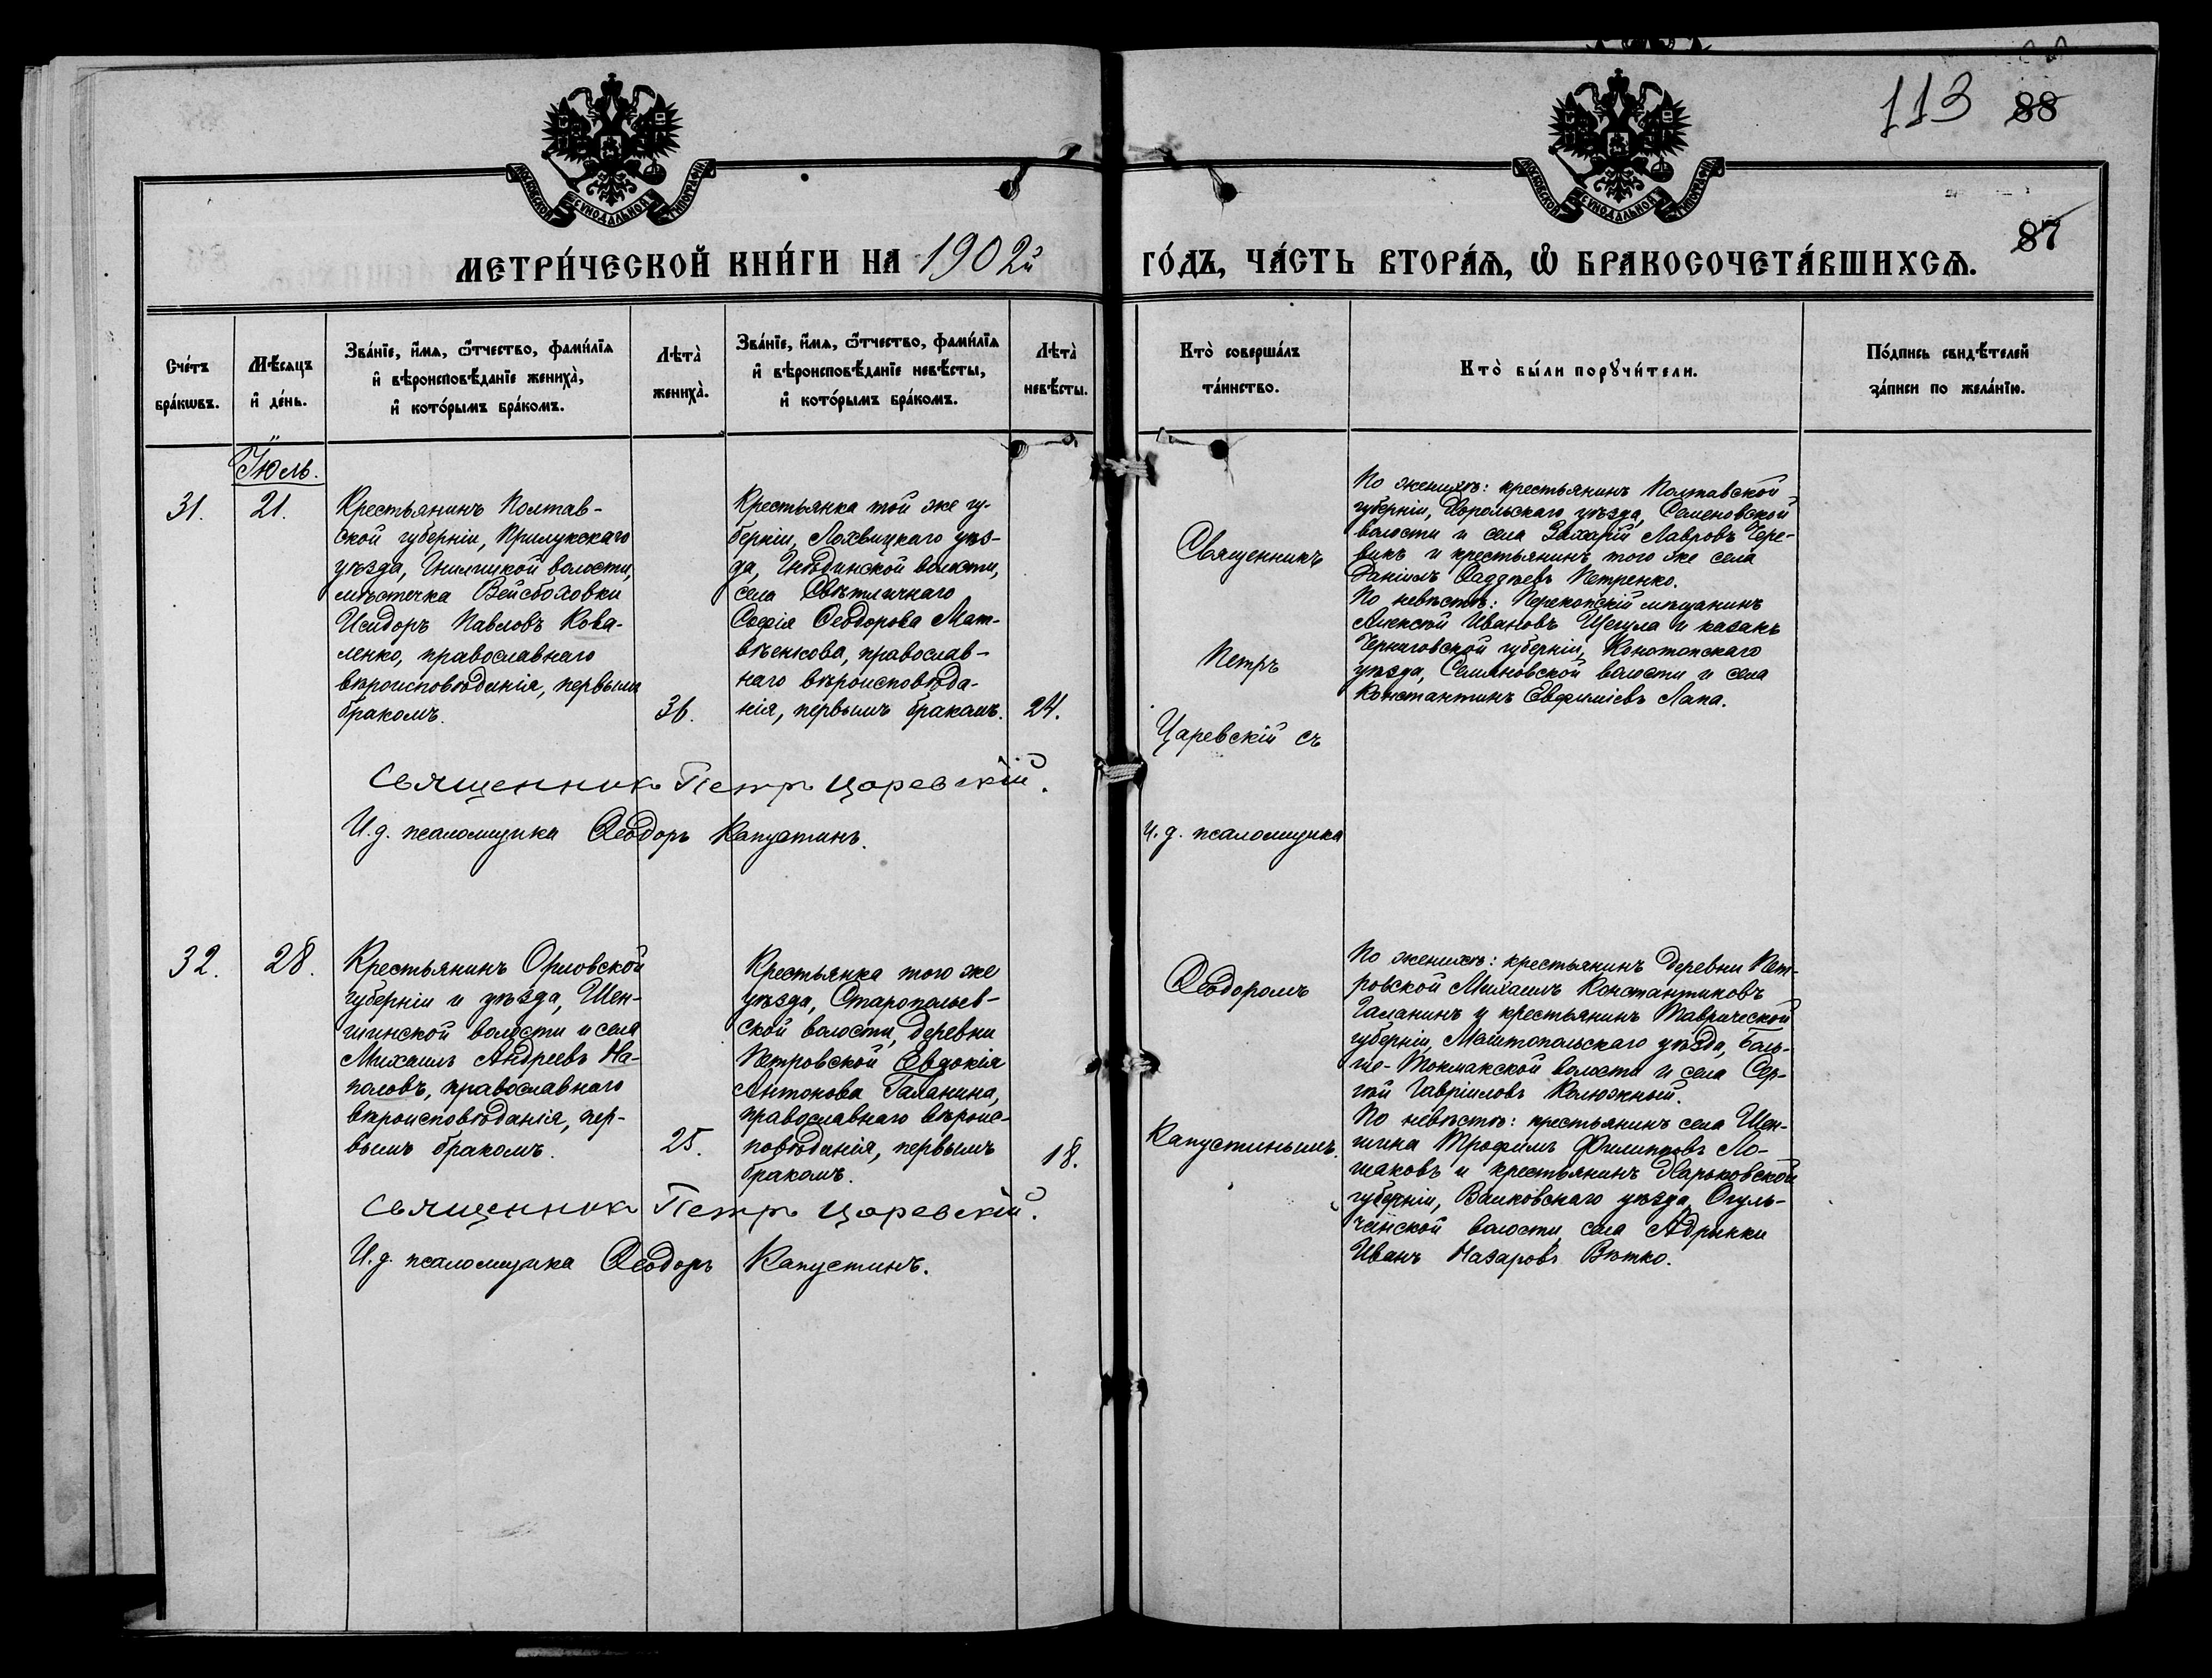 113 88
87
МОСКОВСКОЙ СѴНОДАЛЬНОЙ ТИПОГРАФІИ
МОСКОВСКОЙ СѴНОДАЛЬНОЙ ТИПОГРАФІИ
МЕТРИ́ЧЕСКОЙ КНИ́ГИ НА 1902й ГО́ДЪ, ЧА́СТЬ ВТОРА́Ѧ, Ѡ҆ БРАКОСОЧЕТА́ВШИХСѦ.
Сче́тъ
бра́кѡвъ.
Мѣ́сѧцъ
и҆ де́нь.
Зва́нїе, и҆́мѧ, ѻ҆́тчество, фами́лїѧ
и҆ вѣроисповѣ́данїе жениха̀,
и҆ кото́рымъ бра́комъ.
Лѣта̀
жениха̀.
Зва́нїе, и҆́мѧ, ѻ҆́тчество, фами́лїѧ
и҆ вѣроисповѣ́данїе невѣ́сты,
и҆ кото́рымъ бра́комъ.
Лѣта̀
невѣ́сты.
Кто̀ соверша́лъ
та́инство.
Кто̀ бы́ли порꙋчи́тели.
По́дпись свидѣ́телей
за́писи по жела́нїю.
Іюль.
31.
21.
Крестьянинъ Полтав-
ской губерніи, Прилукскаго
уѣзда, Гнилицкой волости,
мѣстечка Вейсбаховки
Исидоръ Павловъ Кова-
ленко, православнаго
вѣроисповѣданія, первымъ
бракомъ.
36.
Крестьянка той же гу-
берніи, Лохвицкаго уѣз-
да, Гнѣдинской волости,
села Свѣтличнаго
Софія Ѳеодорова Мат-
вѣенкова, православ-
наго вѣроисповѣда-
нія, первымъ бракомъ.
24.
Священникъ
Петръ
Царевскій съ
и. д. псаломщика
По женихѣ: крестьянинъ Полтавской
губерніи, Хорольскаго уѣзда, Семеновской
волости и села Захарій Лавровъ Чере-
викъ и крестьянинъ того же села
Даніилъ Ѳаддѣевъ Петренко.
По невѣстѣ: Перекопскій мѣщанинъ
Алексѣй Ивановъ Щегула и казакъ
Черниговской губерніи, Конотопскаго
уѣзда, Семяновской волости и села
Константинъ Евфиміевъ Лапа.
Священникъ Петръ Царевскій.
И. д. псаломщика Ѳеодоръ Капустинъ.
32.
28.
Крестьянинъ Орловской
губерніи и уѣзда, Шен-
шинской волости и села
Михаилъ Андреевъ На-
половъ, православнаго
вѣроисповѣданія, пер-
вымъ бракомъ.
25.
Крестьянка того же
уѣзда, Старопольев-
ской волости, деревни
Петровской Евдокія
Антонова Галанина,
православнаго вѣроис-
повѣданія, первымъ
бракомъ.
18.
Ѳеодоромъ
Капустинымъ.
По женихѣ: крестьянинъ деревни Пет-
ровской Михаилъ Константиновъ
Галанинъ и крестьянинъ Таврической
губерніи, Мелитопольскаго уѣзда, Боль-
ше-Токмакской волости и села Сер-
гѣй Гавріиловъ Калюжный.
По невѣстѣ: крестьянинъ села Шен-
шина Трофимъ Филипповъ Ло-
шаковъ и крестьянинъ Харьковской
губерніи, Валковскаго уѣзда, Огуль-
чанской волости, села Адрыкки
Иванъ Назаровъ Вѣтко.
Священникъ Петръ Царевскій.
И. д. псаломщика Ѳеодоръ Капустинъ.